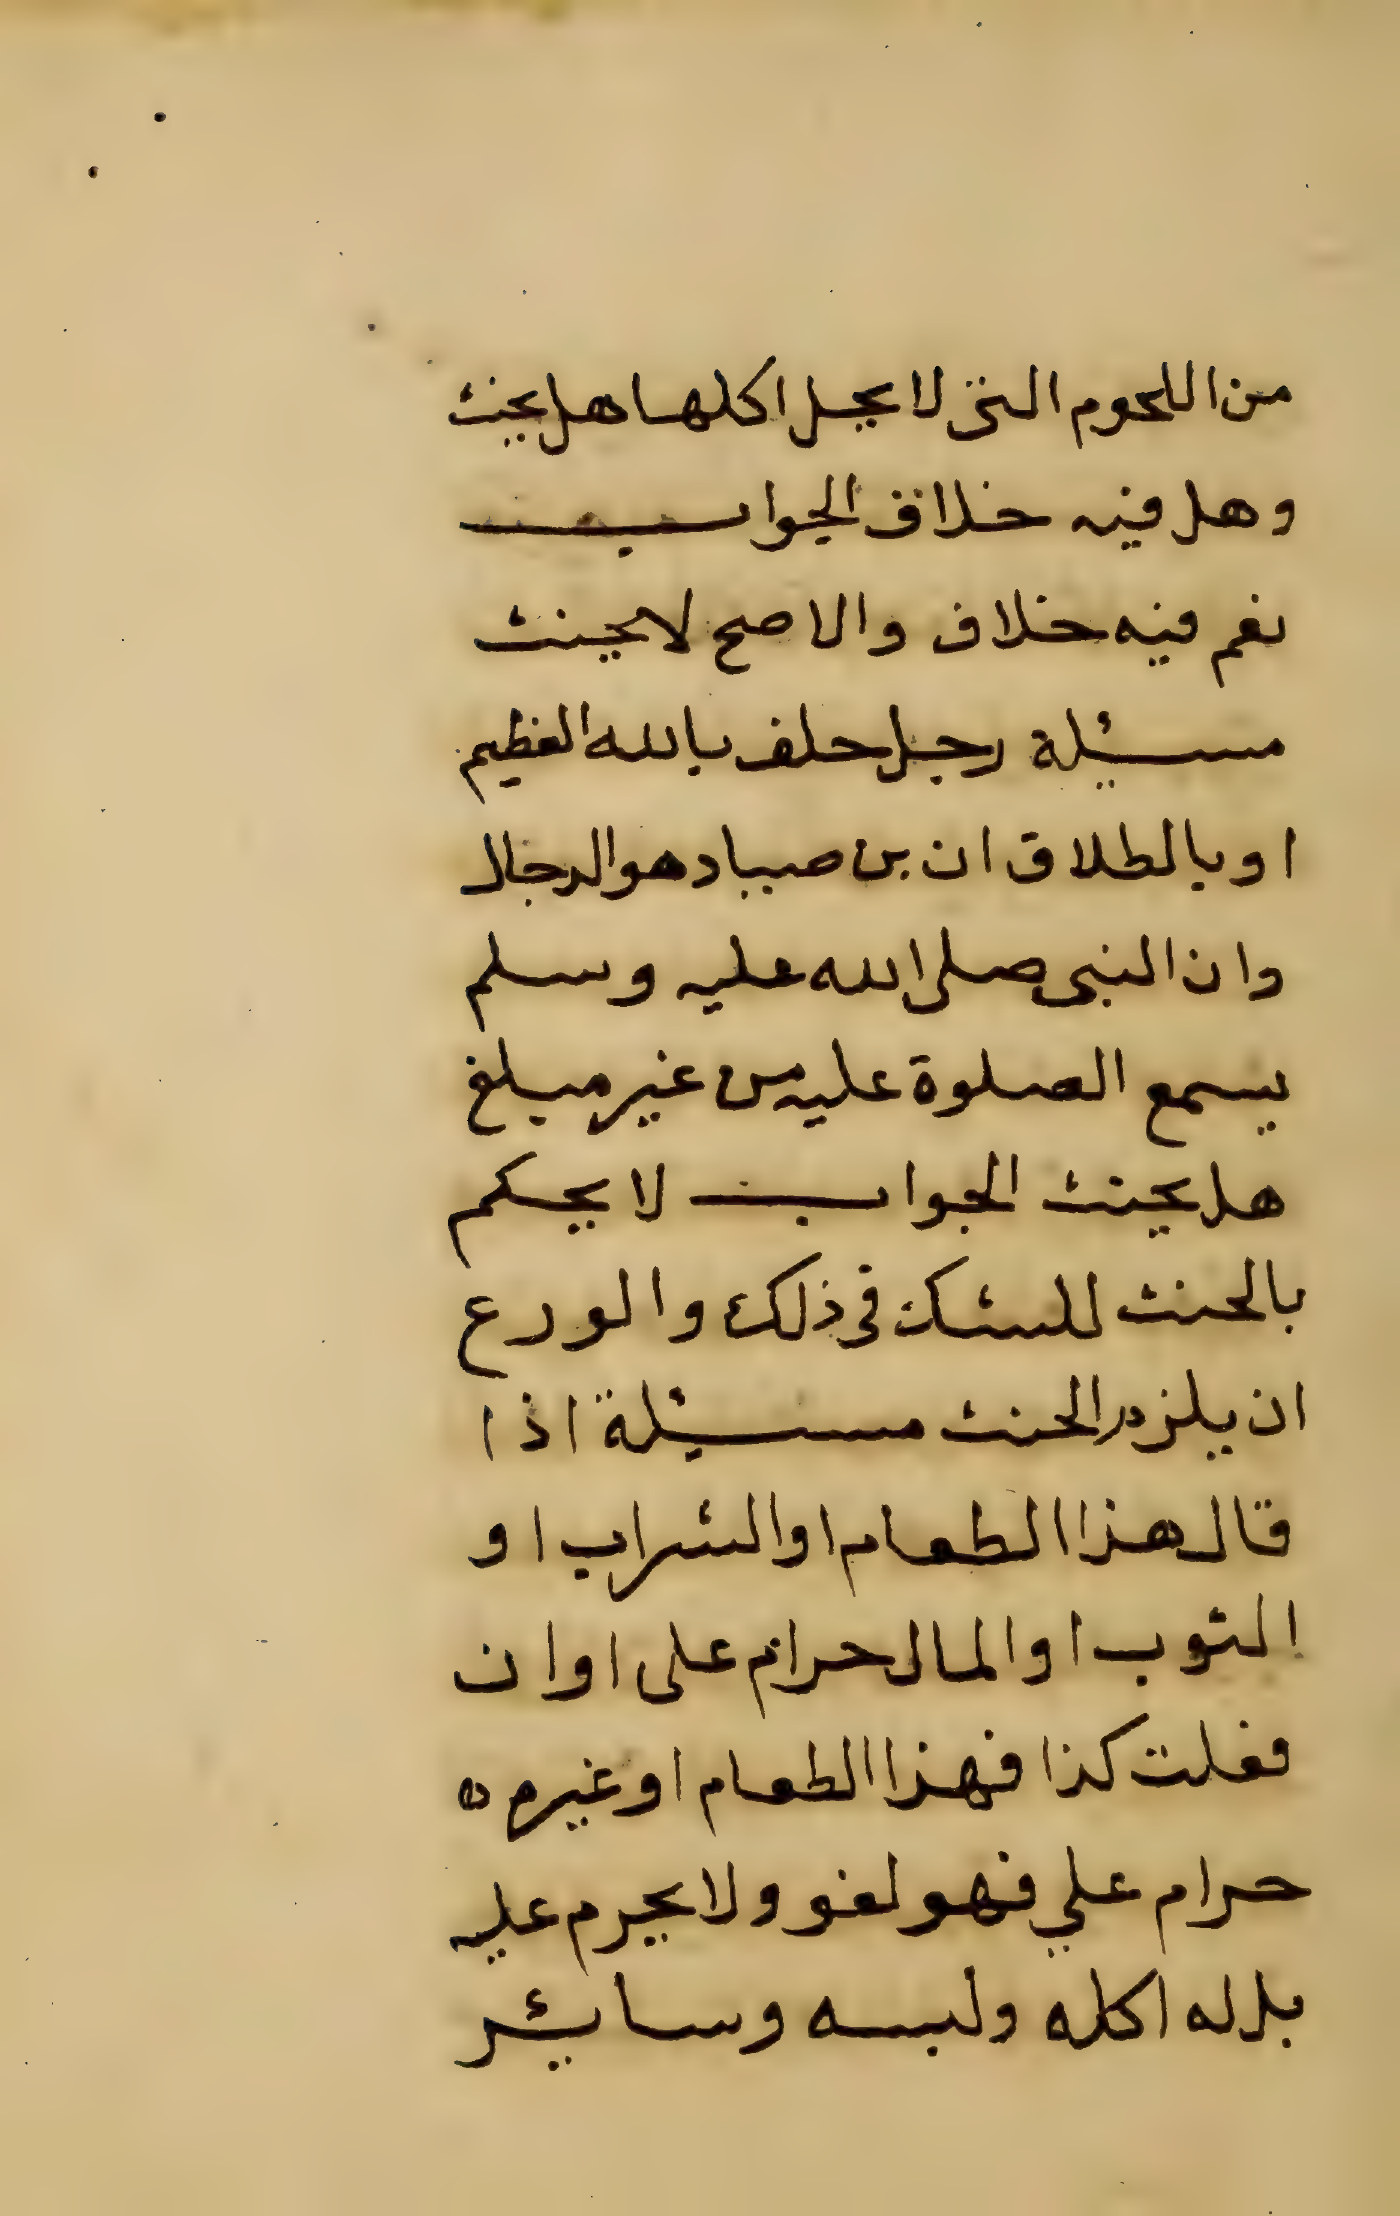 من اللحوم التي لا يحل اكلها هل يحنث
وهل فيه خلاف الجواب
نعم فيه خلاف والاصح لا يحنث
مسئلة رجل حلف بالله العظيم
او بالطلاق ان بن صياد هو الدجال
وان النبى صلى الله عليه وسلم
يسمع الصلوة عليه من غير مبلغ
هل يحنث الجواب لا يحكم
بالحنث للشك في ذلك والورع
ان يلزم الحنث مسئلة اذا
قال هذا الطعام او الشراب او
الثوب او المال حرام على او ان
فعلت كذا فهذا الطعام او غيره ه
حرام علي فهو لغو ولا يحرم عليه
بل له اكله ولبسه وسائر